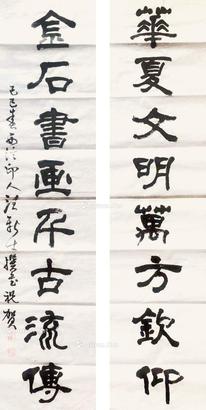 華夏文明萬方欽仰
金石書画千古流傳
己巳春西泠印人江新士撰並祝賀